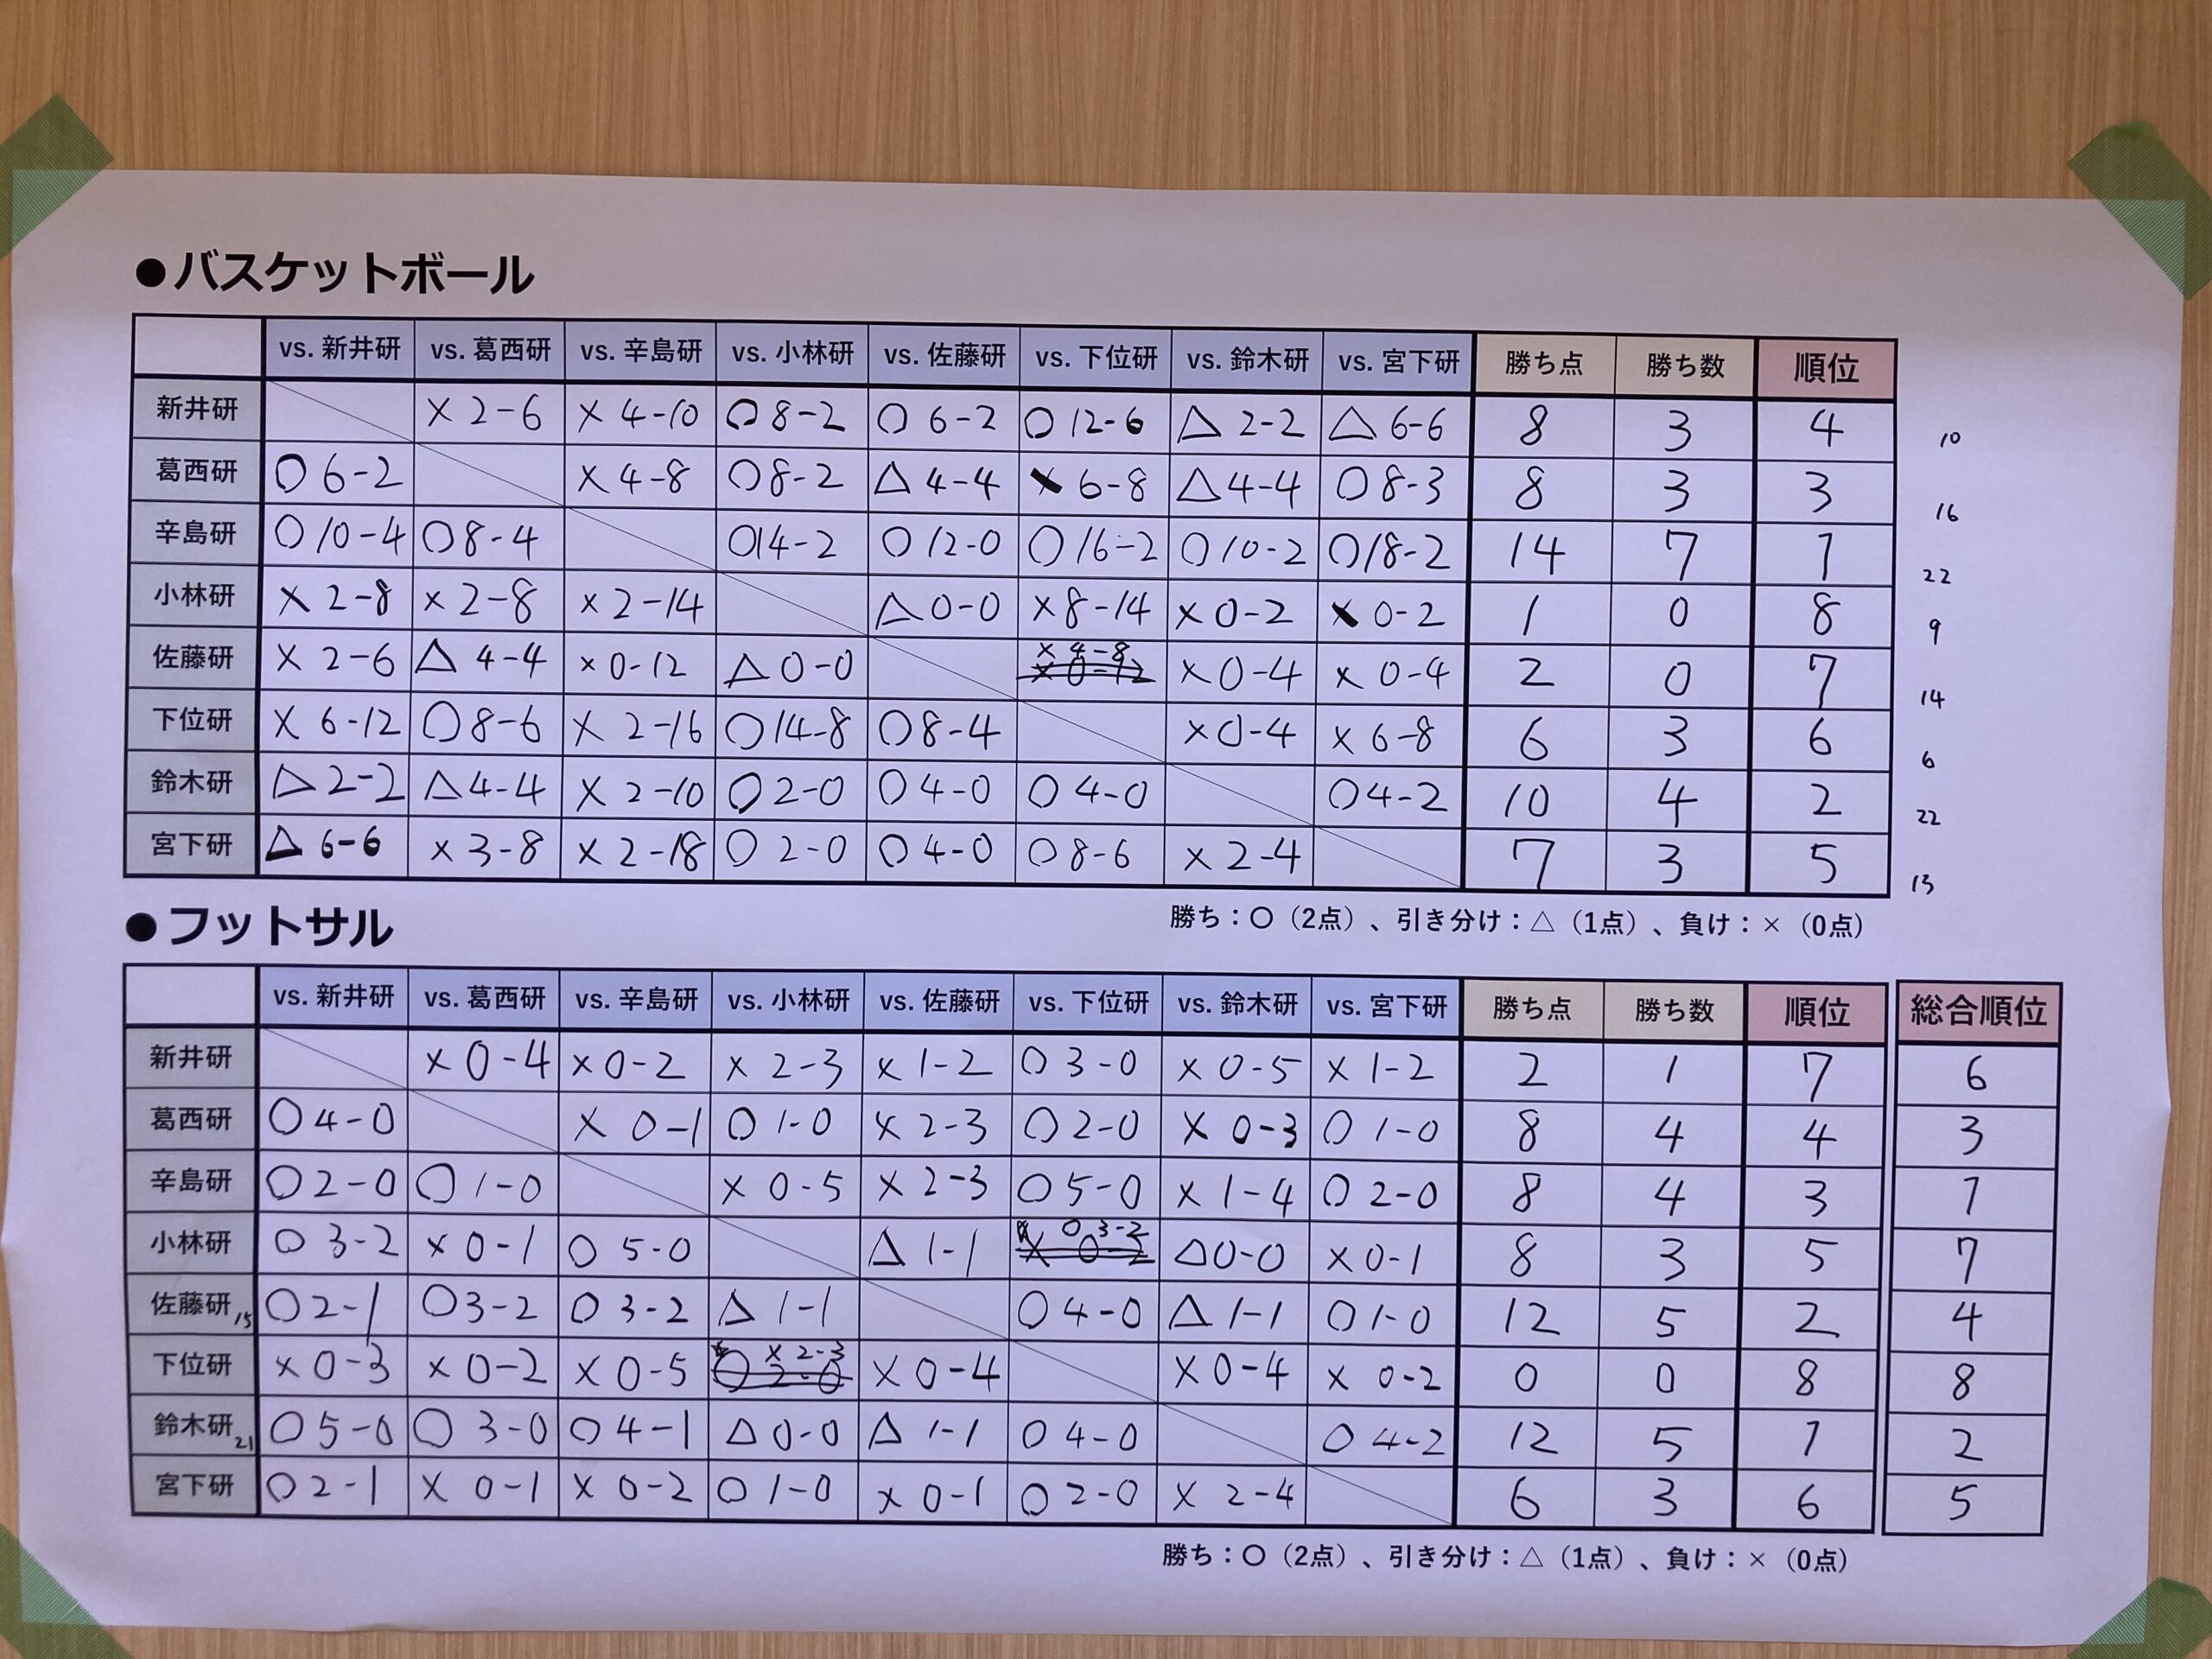 ●バスケットボール
vs. 新井研 vs. 葛西研 vs. 辛島研 vs. 小林研 vs. 佐藤研 vs. 下位研 vs. 鈴木研 vs. 宮下研 勝ち点 勝ち数 順位
新井研 × 2-6 × 4-10 ○ 8-2 ○ 6-2 ○ 12-6 △ 2-2 △ 6-6 8 3 4 10
葛西研 ○ 6-2 × 4-8 ○ 8-2 △ 4-4 × 6-8 △ 4-4 ○ 8-3 8 3 3 16
辛島研 ○ 10-4 ○ 8-4 ○ 14-2 ○ 12-0 ○ 16-2 ○ 10-2 ○ 18-2 14 7 1 22
小林研 × 2-8 × 2-8 × 2-14 △ 0-0 × 8-14 × 0-2 × 0-2 1 0 8 9
佐藤研 × 2-6 △ 4-4 × 0-12 △ 0-0 × 4-8 × 0-4 × 0-4 2 0 7 14
下位研 × 6-12 ○ 8-6 × 2-16 ○ 14-8 ○ 8-4 × 0-4 × 6-8 6 3 6 6
鈴木研 △ 2-2 △ 4-4 × 2-10 ○ 2-0 ○ 4-0 ○ 4-0 ○ 4-2 10 4 2 22
宮下研 △ 6-6 × 3-8 × 2-18 ○ 2-0 ○ 4-0 ○ 8-6 × 2-4 7 3 5 13
勝ち：○（2点）、引き分け：△（1点）、負け：×（0点）
●フットサル
vs. 新井研 vs. 葛西研 vs. 辛島研 vs. 小林研 vs. 佐藤研 vs. 下位研 vs. 鈴木研 vs. 宮下研 勝ち点 勝ち数 順位 総合順位
新井研 × 0-4 × 0-2 × 2-3 × 1-2 ○ 3-0 × 0-5 × 1-2 2 1 7 6
葛西研 ○ 4-0 × 0-1 ○ 1-0 × 2-3 ○ 2-0 × 0-3 ○ 1-0 8 4 4 3
辛島研 ○ 2-0 ○ 1-0 × 0-5 × 2-3 ○ 5-0 × 1-4 ○ 2-0 8 4 3 1
小林研 ○ 3-2 × 0-1 ○ 5-0 △ 1-1 ○ 3-2 △ 0-0 × 0-1 8 3 5 7
佐藤研 15 ○ 2-1 ○ 3-2 ○ 3-2 △ 1-1 ○ 4-0 △ 1-1 ○ 1-0 12 5 2 4
下位研 × 0-3 × 0-2 × 0-5 × 2-3 × 0-4 × 0-4 × 0-2 0 0 8 8
鈴木研 21 ○ 5-0 ○ 3-0 ○ 4-1 △ 0-0 △ 1-1 ○ 4-0 ○ 4-2 12 5 1 2
宮下研 ○ 2-1 × 0-1 × 0-2 ○ 1-0 × 0-1 ○ 2-0 × 2-4 6 3 6 5
勝ち：○（2点）、引き分け：△（1点）、負け：×（0点）